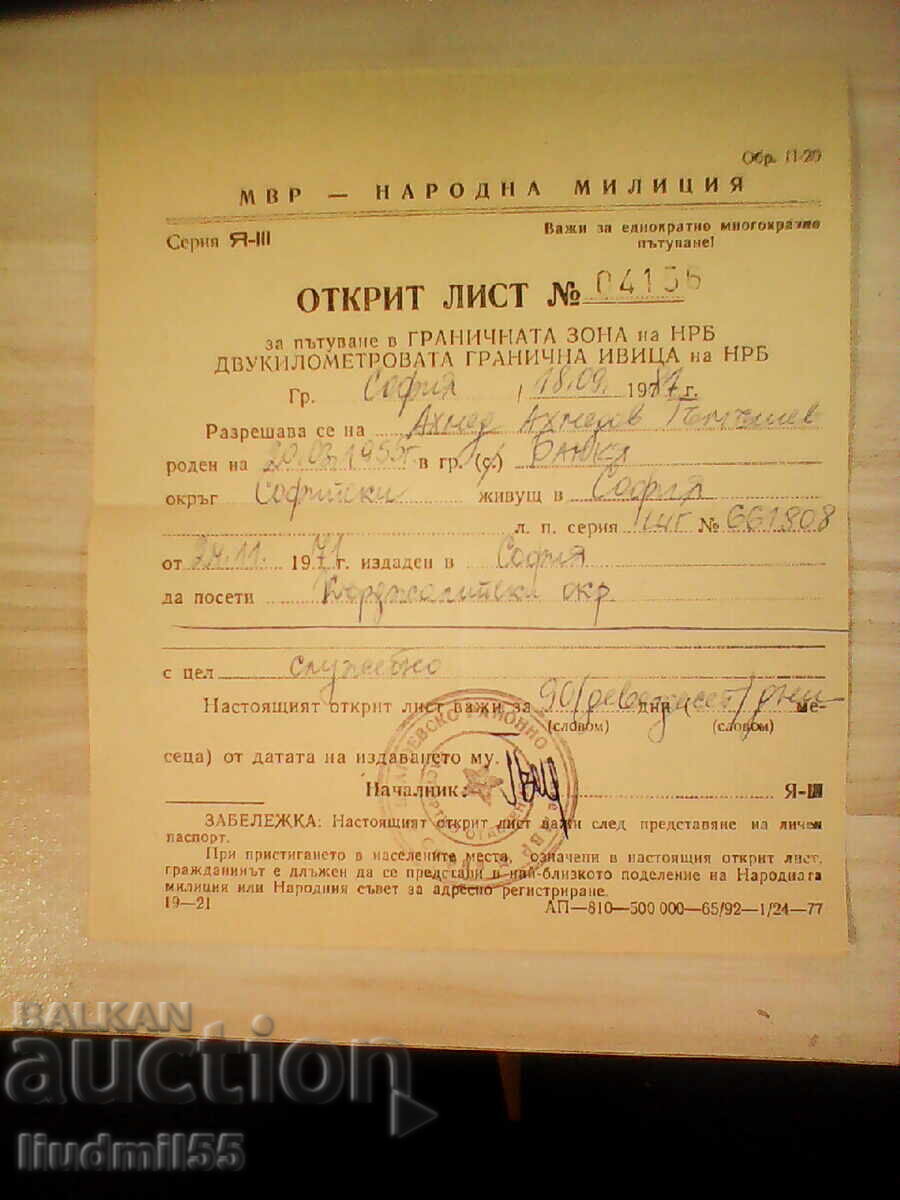 Обр. П-20
МВР — НАРОДНА МИЛИЦИЯ
Серия Я-III
Важи за еднократно многократно
пътуване!
ОТКРИТ ЛИСТ № 04156
за пътуване в ГРАНИЧНАТА ЗОНА на НРБ
ДВУКИЛОМЕТРОВАТА ГРАНИЧНА ИВИЦА на НРБ
Гр. София / 18.09. 197 г.
Разрешава се на Ахмед Ахмедов
роден на 20.03.1955г. в гр. (с.)
округ Софийски живущ в София
л. п. серия № 661808
от 24.11. 1971 г. издаден в София
да посети Кърджалийски окр.
с цел служебно
Настоящият открит лист важи за 90/деведесет/дни дни ( ме-
(словом) (словом)
сеца) от датата на издаването му.
Началник:
Я-III
ЗАБЕЛЕЖКА: Настоящият открит лист важи след представяне на личен
паспорт.
При пристигането в населените места, означени в настоящия открит лист,
гражданинът е длъжен да се представи в най-близкото поделение на Народната
милиция или Народния съвет за адресно регистриране.
19—21
АП—810—500 000—65/92—1/24—77
BALKAN
auction
liudmil55